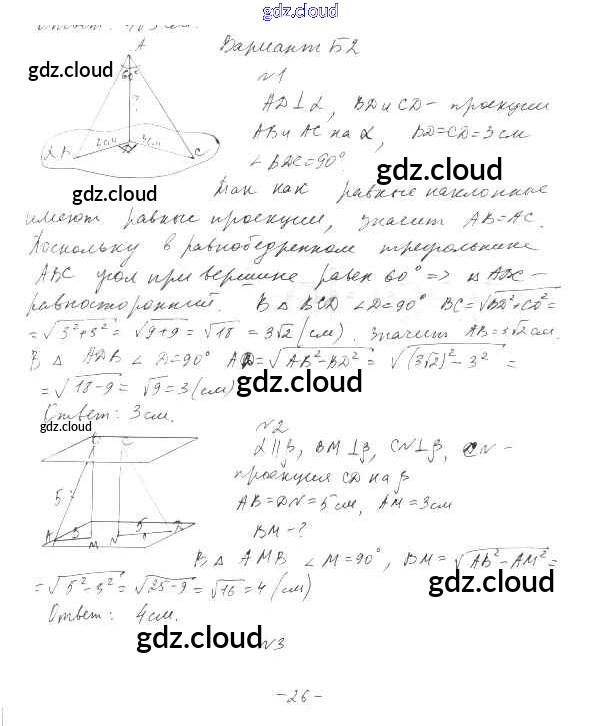 gdz.cloud
Ответ: 
Вариант Б2
A
gdz.cloud
60°
№1
?
AD⊥α, BD и CD – проекции
AB и AC на α, BD=CD=3см
3см 3см
α B C
∠BDC=90°
gdz.cloud
gdz.cloud
Так как равные наклонные
имеют равные проекции, значит AB=AC.
Поскольку в равнобедренном треугольнике
ABC угол при вершине равен 60° => △ABC –
равносторонний. В △BCD ∠D=90° BC=√BD²+CD²=
=√3²+3²=√9+9=√18=3√2(см). Значит AB=3√2см.
В △ADB ∠D=90° AD=√AB²-BD²=√(3√2)²-3²=
=√18-9=√9=3(см)
gdz.cloud
Ответ: 3см.
gdz.cloud
№2
α||β, BM⊥β, CN⊥β, DN –
проекция CD на β
AB=DN=5см, AM=3см
BM-?
5
A 3 M N 5 D
В △AMB ∠M=90°, BM=√AB²-AM²=
=√5²-3²=√25-9=√16=4(см)
gdz.cloud
Ответ: 4см.
gdz.cloud
№3
-26-